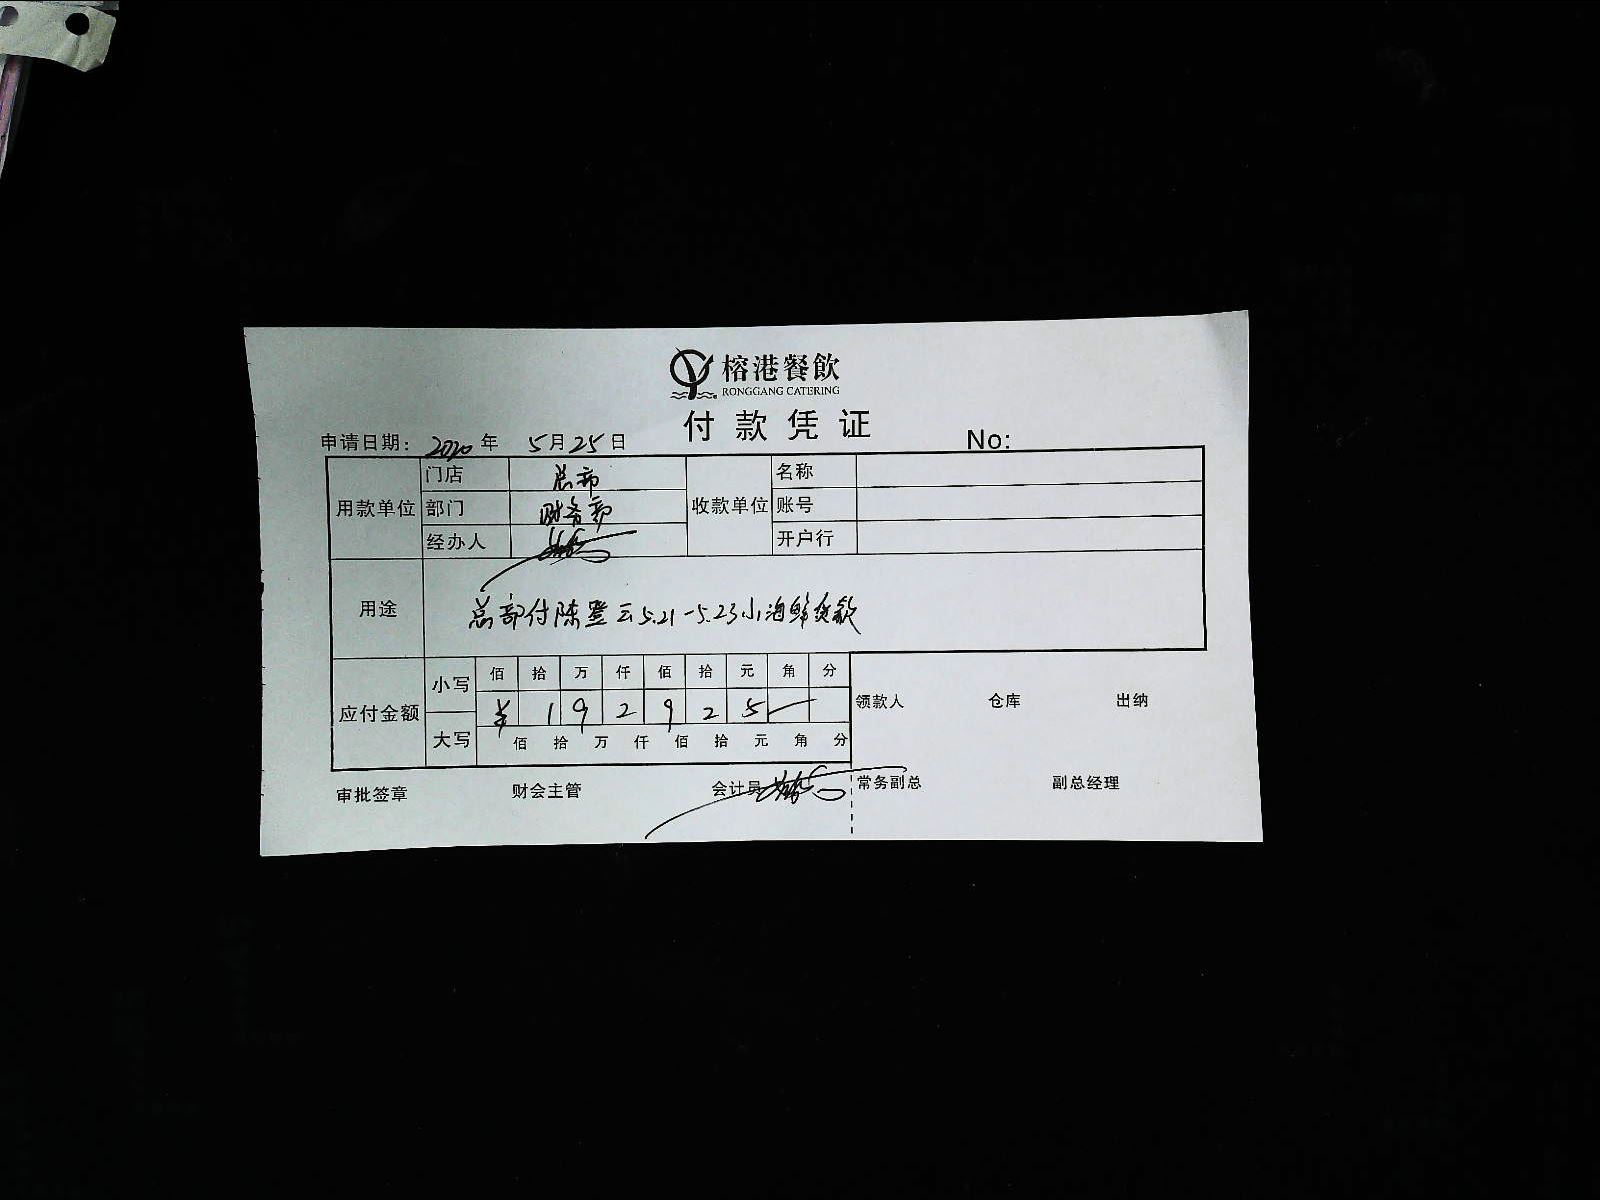 榕港餐飲
RONGGANG CATERING
付款凭证
申请日期: 2020年 5月25日 No:
用款单位 门店 总部 收款单位 名称
部门 财务部 账号
经办人 开户行
用途 总部付陈登云5.21-5.23小海鲜货款
应付金额 小写 佰 拾 万 仟 佰 拾 元 角 分
¥ 1 9 2 9 2 5 —
大写 佰 拾 万 仟 佰 拾 元 角 分
领款人 仓库 出纳
审批签章 财会主管 会计员 常务副总 副总经理